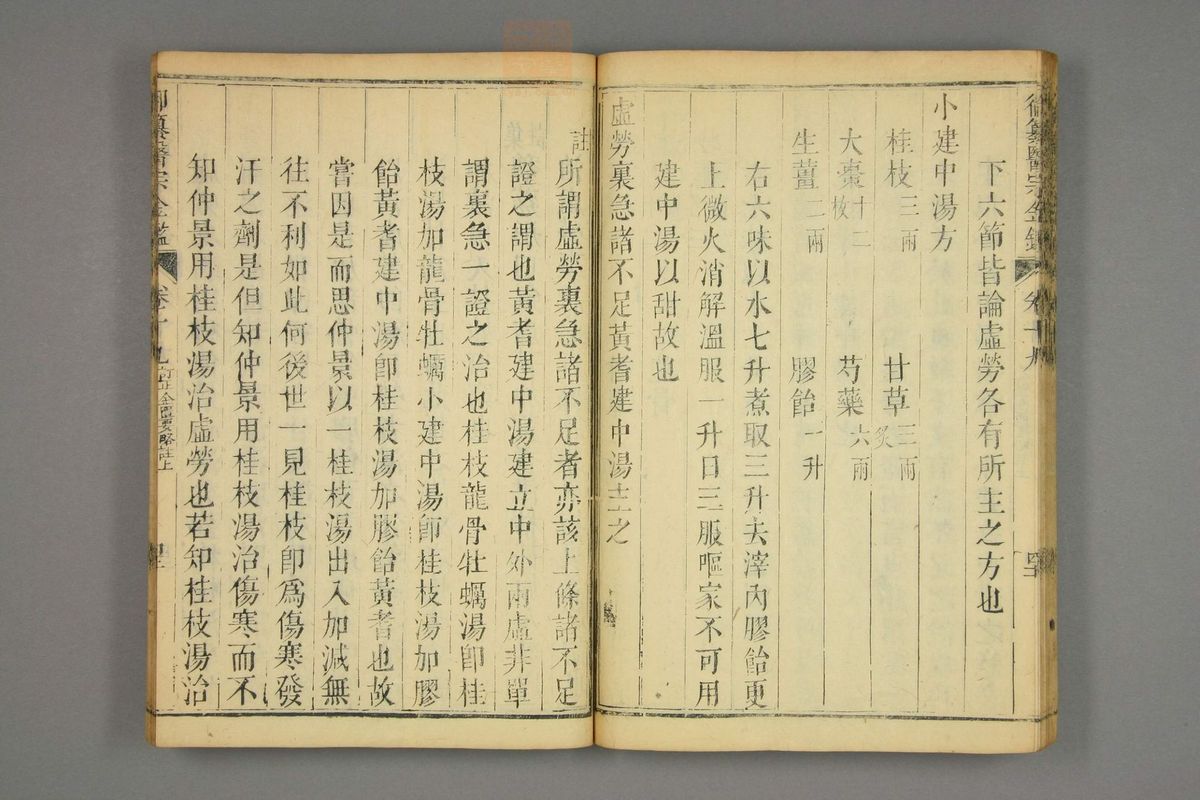 御纂醫宗金鑑 卷十九
下六節皆論虛勞各有所主之方也
小建中湯方
桂枝三兩 甘草三兩炙
大棗十二枚 芍藥六兩
生薑二兩 膠飴一升
右六味以水七升煮取三升去滓內膠飴更
上微火消解溫服一升日三服嘔家不可用
建中湯以甜故也
虛勞裏急諸不足黃耆建中湯主之
註所謂虛勞裏急諸不足者亦該上條諸不足
證之謂也黃耆建中湯建立中外兩虛非單
謂裏急一證之治也桂枝龍骨牡蠣湯卽桂
枝湯加龍骨牡蠣小建中湯卽桂枝湯加膠
飴黃耆建中湯卽桂枝湯加膠飴黃耆也故
嘗因是而思仲景以一桂枝湯出入加減無
往不利如此何後世一見桂枝卽爲傷寒發
汗之劑是但知仲景用桂枝湯治傷寒而不
知仲景用桂枝湯治虛勞也若知桂枝湯治
御纂醫宗金鑑 卷十九